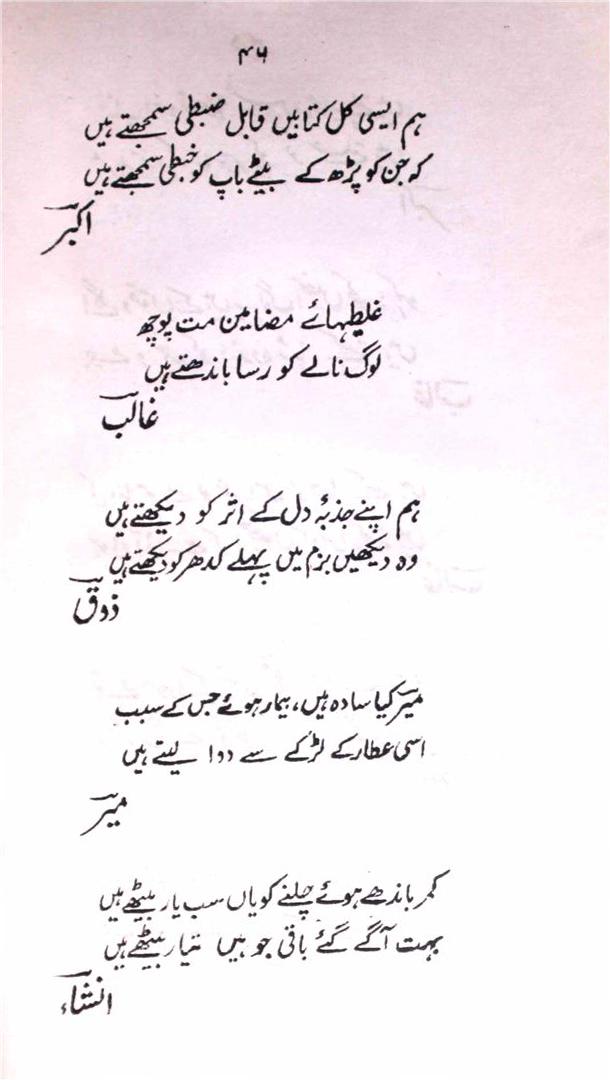 ۴۶
ہم ایسی کل کتابیں قابل ضبطی سمجھتے ہیں
کہ جن کو پڑھ کے بیٹے باپ کو خبطی سمجھتے ہیں
اکبر
غلطیہائے مضامین مت پوچھ
لوگ نالے کو رسا باندھتے ہیں
غالب
ہم اپنے جذبۂ دل کے اثر کو دیکھتے ہیں
وہ دیکھیں بزم میں پہلے کدھر کو دیکھتے ہیں
ذوق
میر کیا سادہ ہیں، بیمار ہوئے جس کے سبب
اسی عطار کے لڑکے سے دوا لیتے ہیں
میر
کمر باندھے ہوئے چلنے کو یاں سب یار بیٹھے ہیں
بہت آگے گئے باقی جو ہیں تیار بیٹھے ہیں
انشاء